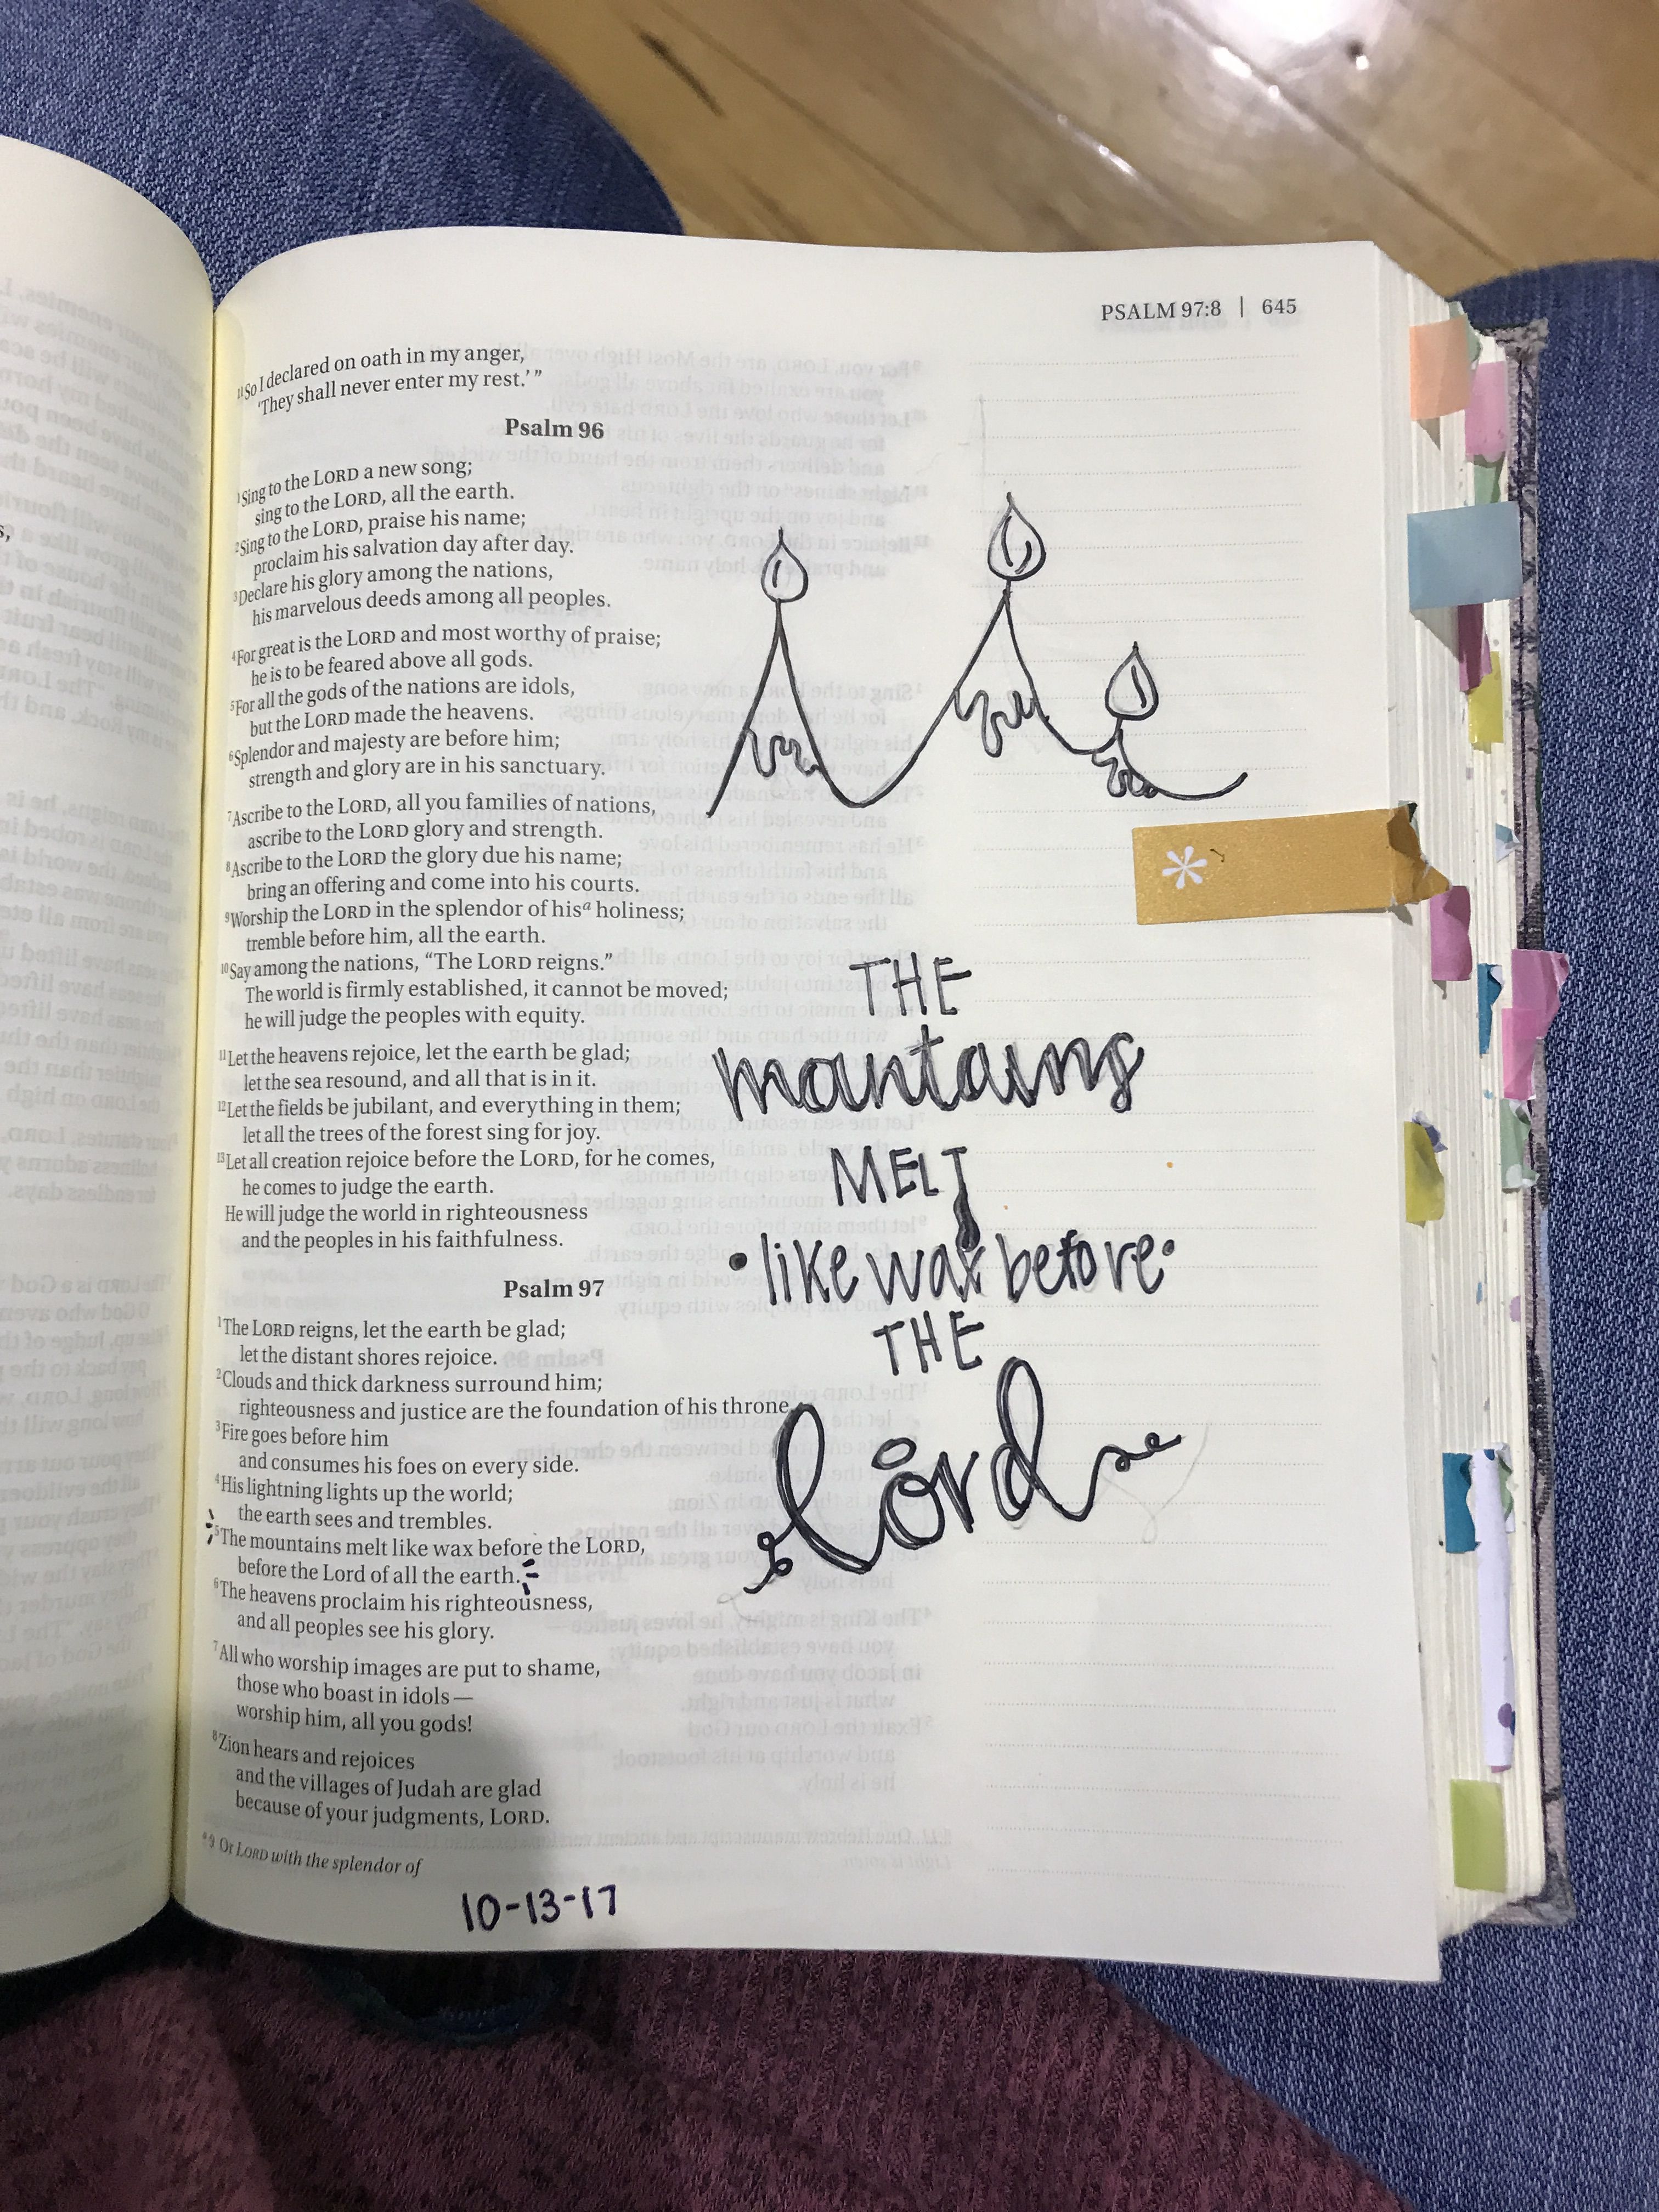 PSALM 97:8 | 645
11So I declared on oath in my anger,
'They shall never enter my rest.' "
Psalm 96
1Sing to the LORD a new song;
sing to the LORD, all the earth.
2Sing to the LORD, praise his name;
proclaim his salvation day after day.
3Declare his glory among the nations,
his marvelous deeds among all peoples.
4For great is the LORD and most worthy of praise;
he is to be feared above all gods.
5For all the gods of the nations are idols,
but the LORD made the heavens.
6Splendor and majesty are before him;
strength and glory are in his sanctuary.
7Ascribe to the LORD, all you families of nations,
ascribe to the LORD glory and strength.
8Ascribe to the LORD the glory due his name;
bring an offering and come into his courts.
9Worship the LORD in the splendor of hisa holiness;
tremble before him, all the earth.
10Say among the nations, “The LORD reigns.”
The world is firmly established, it cannot be moved;
he will judge the peoples with equity.
11Let the heavens rejoice, let the earth be glad;
let the sea resound, and all that is in it.
12Let the fields be jubilant, and everything in them;
let all the trees of the forest sing for joy.
13Let all creation rejoice before the LORD, for he comes,
he comes to judge the earth.
He will judge the world in righteousness
and the peoples in his faithfulness.
Psalm 97
1The LORD reigns, let the earth be glad;
let the distant shores rejoice.
2Clouds and thick darkness surround him;
righteousness and justice are the foundation of his throne.
3Fire goes before him
and consumes his foes on every side.
4His lightning lights up the world;
the earth sees and trembles.
5The mountains melt like wax before the LORD,
before the Lord of all the earth.
6The heavens proclaim his righteousness,
and all peoples see his glory.
7All who worship images are put to shame,
those who boast in idols—
worship him, all you gods!
8Zion hears and rejoices
and the villages of Judah are glad
because of your judgments, LORD.
a 9 Or LORD with the splendor of
10-13-17
THE
mountains
MELT
•like wax before•
THE
lord